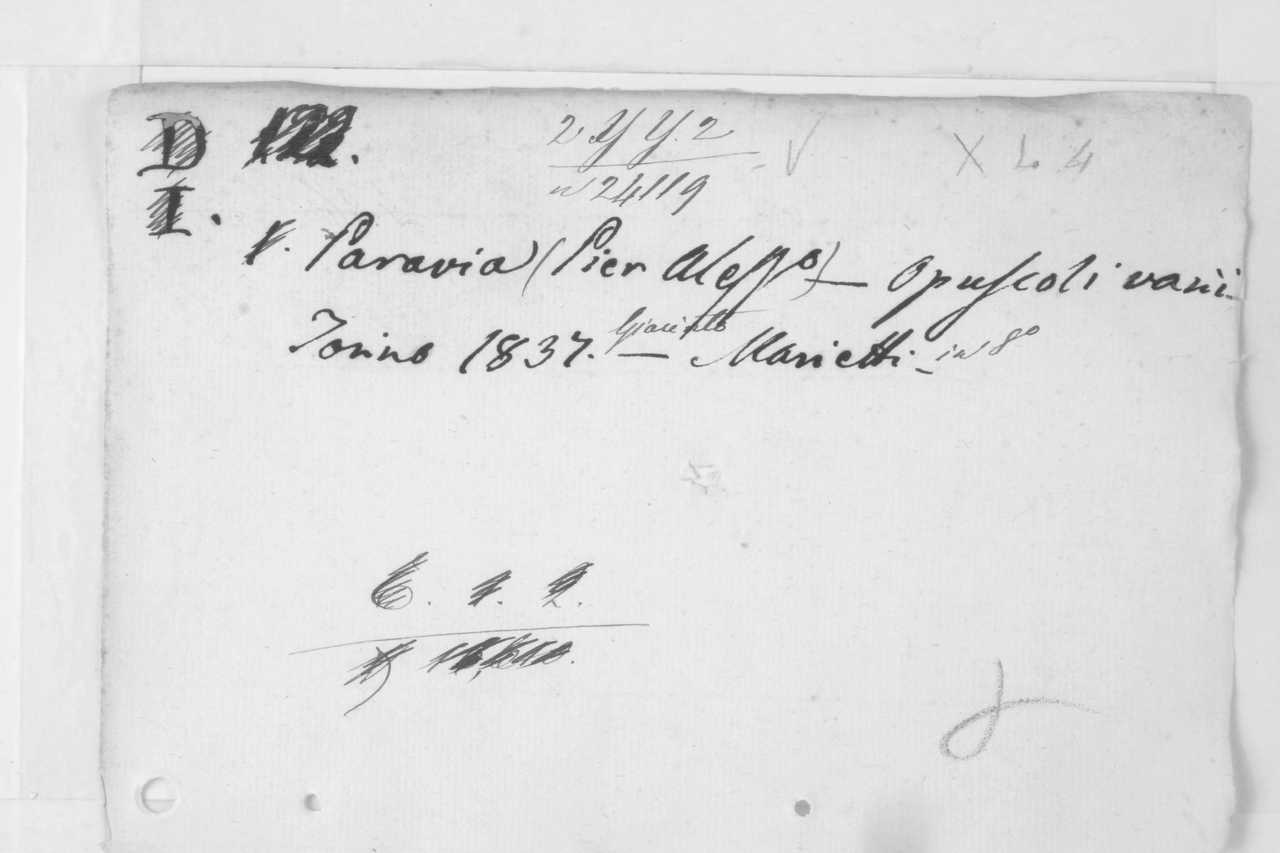 D 122.
I.
2 Y Y. 2
n 24119
X L 4
Paravia (Pier Aless°) — Opuscoli varii.
Torino 1837. — Giacinto Marietti. in 8°